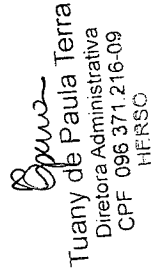 Tuany de Paula Terra
Diretora Administrativa
CPF 096 371.216-09
HFRSO